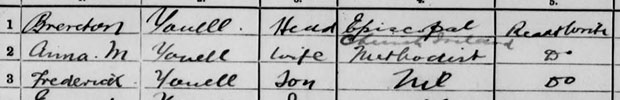 1 Brereton Youell. Head Episcopal Read & Write
Church Ireland
2 Anna. M Youell Wife Methodist Do
3 Frederick Youell Son Nil Do